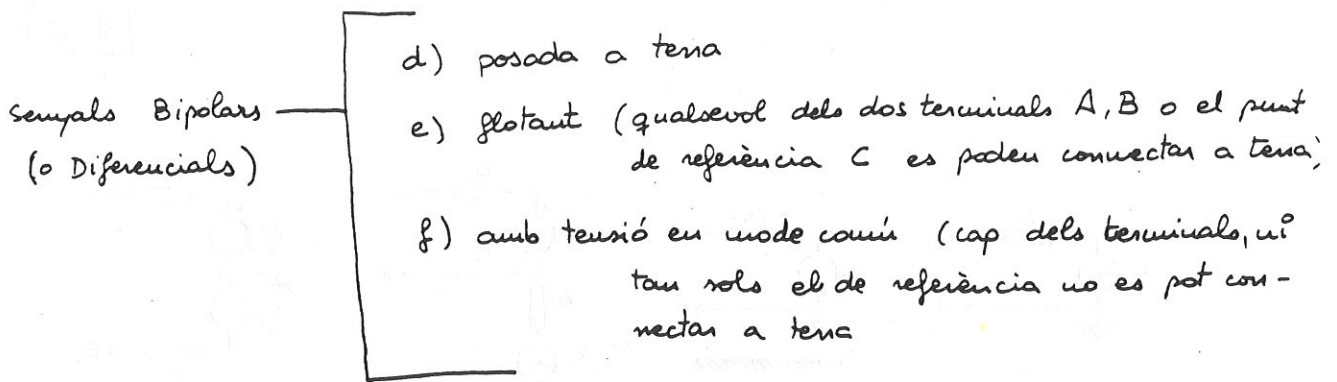 d) posada a terra
Senyals Bipolars
(o Diferencials)
e) flotant (qualsevol dels dos terminals A, B o el punt
de referència C es poden connectar a terra)
f) amb tensió en mode comú (cap dels terminals, ni
tan sols el de referència no es pot con-
nectar a terra